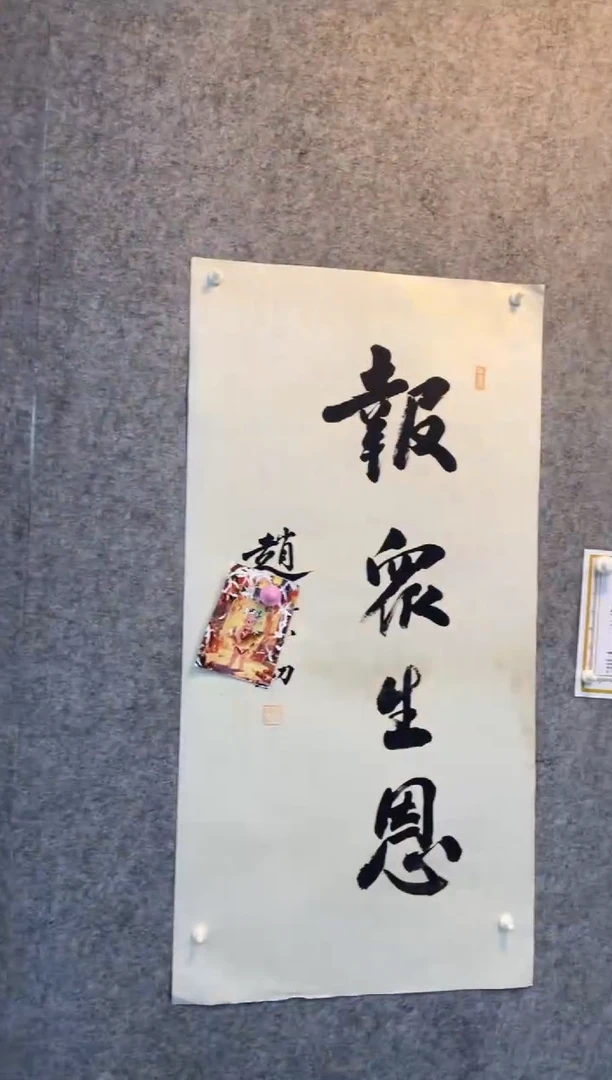 報眾生恩
趙
初